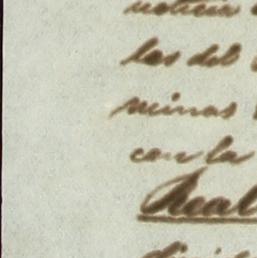 noticia
las del
minas
con la
Real